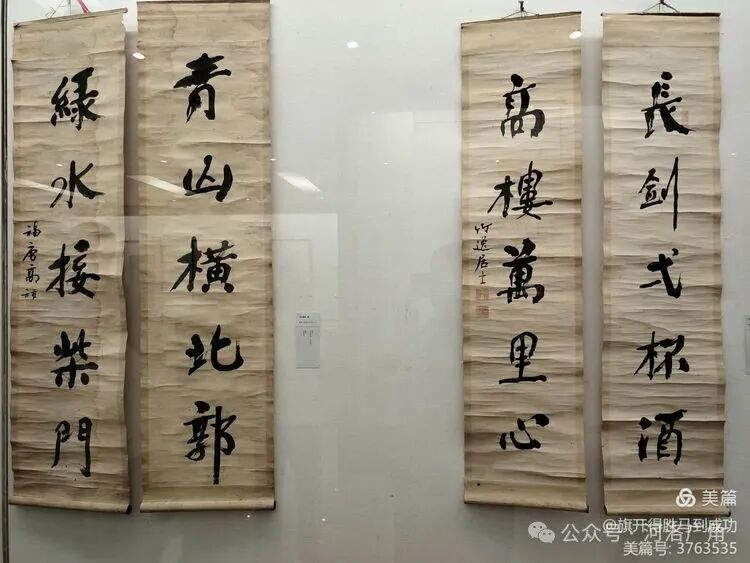 長劍弌杯酒
高樓萬里心
竹逸居士
青山橫北郭
綠水接柴門
福唐高
美篇
@旗开得胜马到成功
公众号 · 河洛广角
美篇号: 3763535